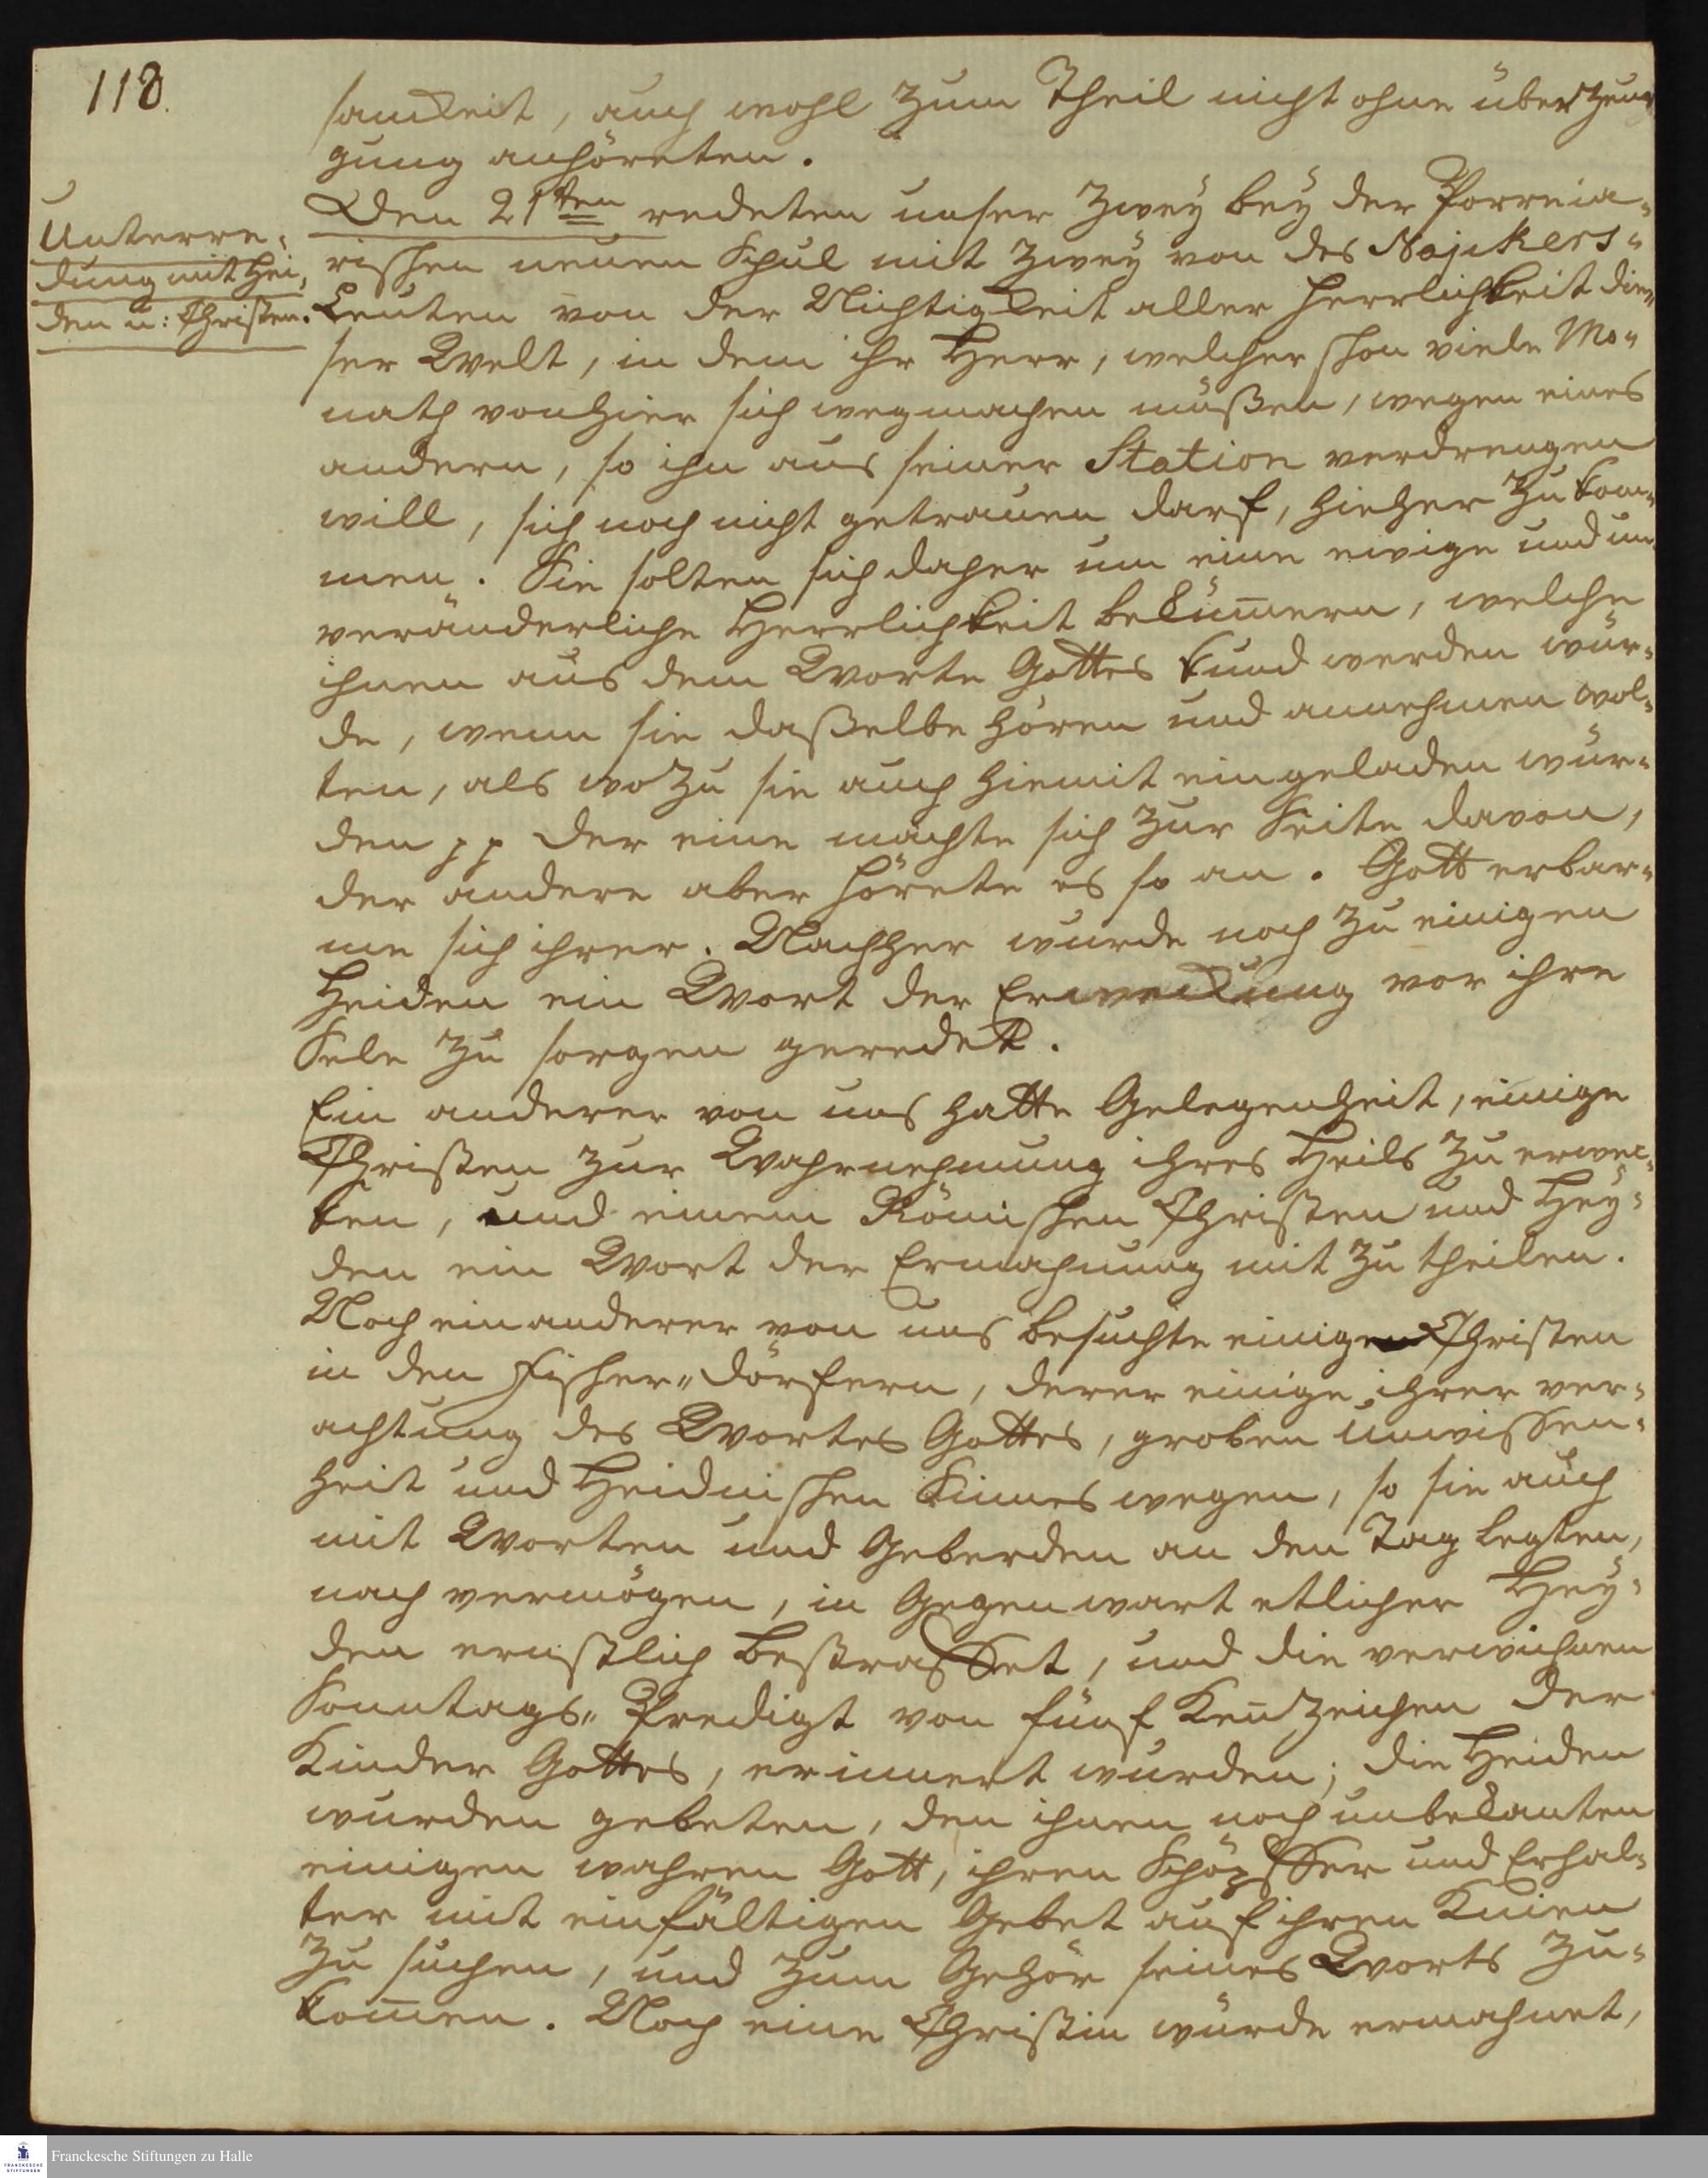 118.
samkeit, auch wohl zum Theil nicht ohne überzeu-
gung anhöreten.
Unterre-
dung mit Hei,
den u: Christen.
Den 21ten redeten unser zweÿ beÿ der Porreia-
rischen neuen Schul mit zweÿ von des Najikers-
Leuten von der Nichtigkeit aller Herrlichkeit die-
ser Welt, in dem ihr Herr, welcher schon viele Mo-
nath von hier sich wegmachen müßen, wegen eines
andern, so ihn aus seiner Station verdrengen
will, sich noch nicht getrauen darf, hieher zu kom-
men. Sie solten sich daher um eine ewige und un-
veränderliche Herrlichkeit bekümmern, welche
ihnen aus dem Worte Gottes kund werden wür-
de, wenn sie daßelbe hören und annehmen wol-
ten, als wozu sie auch hiemit eingeladen wür-
den pp der eine machte sich zur Seite davon,
der andere aber hörete es so an. Gott erbar-
me sich ihrer. Nachher wurde noch zu einigen
Heiden ein Wort der Erweckung vor ihre
Sele zu sorgen geredet.
Ein anderer von uns hatte Gelegenheit, einige
Christen zur Wahrnehmung ihres Heils zu erwec-
ken, und einem Römischen Christen und Heÿ-
den ein Wort der Ermahnung mit zu theilen.
Noch ein anderer von uns besuchte einige Christen
in den Fischer-dörfern, derer einige ihrer ver-
achtung des Wortes Gottes, groben unwissen-
heit und Heidnischen Sinnes wegen, so sie auch
mit Worten und Geberden an den Tag legten,
nach vermögen, in Gegenwart etlicher Heÿ-
den ernstlich bestraffet, und die verwichnen
Sonntags-Predigt von fünf Kennzeichen der
Kinder Gottes, erinnert wurden; die Heiden
wurden gebeten, den ihnen noch unbekanten
einigen wahren Gott, ihren Schöpffer und Erhal-
ter mit einfältigen Gebet auf ihren Knien
zu suchen, und zum Gehör seines Worts zu-
kommen. Noch eine Christin wurde ermahnet,
Franckesche Stiftungen zu Halle
FRANCKESCHE
STIFTUNGEN